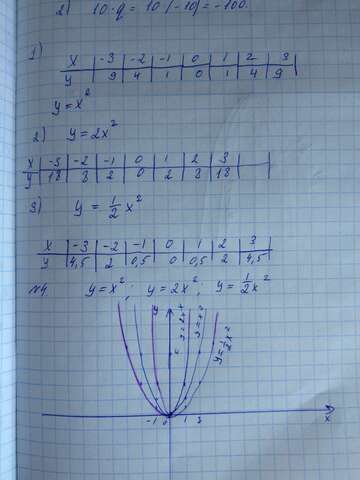 2) 10·q = 10·(-10) = -100.
1)
x | -3 | -2 | -1 | 0 | 1 | 2 | 3
y | 9 | 4 | 1 | 0 | 1 | 4 | 9
y = x²
2) y = 2x²
x | -3 | -2 | -1 | 0 | 1 | 2 | 3
y | 18 | 8 | 2 | 0 | 2 | 8 | 18
3) y = 1/2 x²
x | -3 | -2 | -1 | 0 | 1 | 2 | 3
y | 4,5 | 2 | 0,5 | 0 | 0,5 | 2 | 4,5
№4 y = x²; y = 2x²; y = 1/2 x²
y
y = 1/2 x²
-1 0 1
x